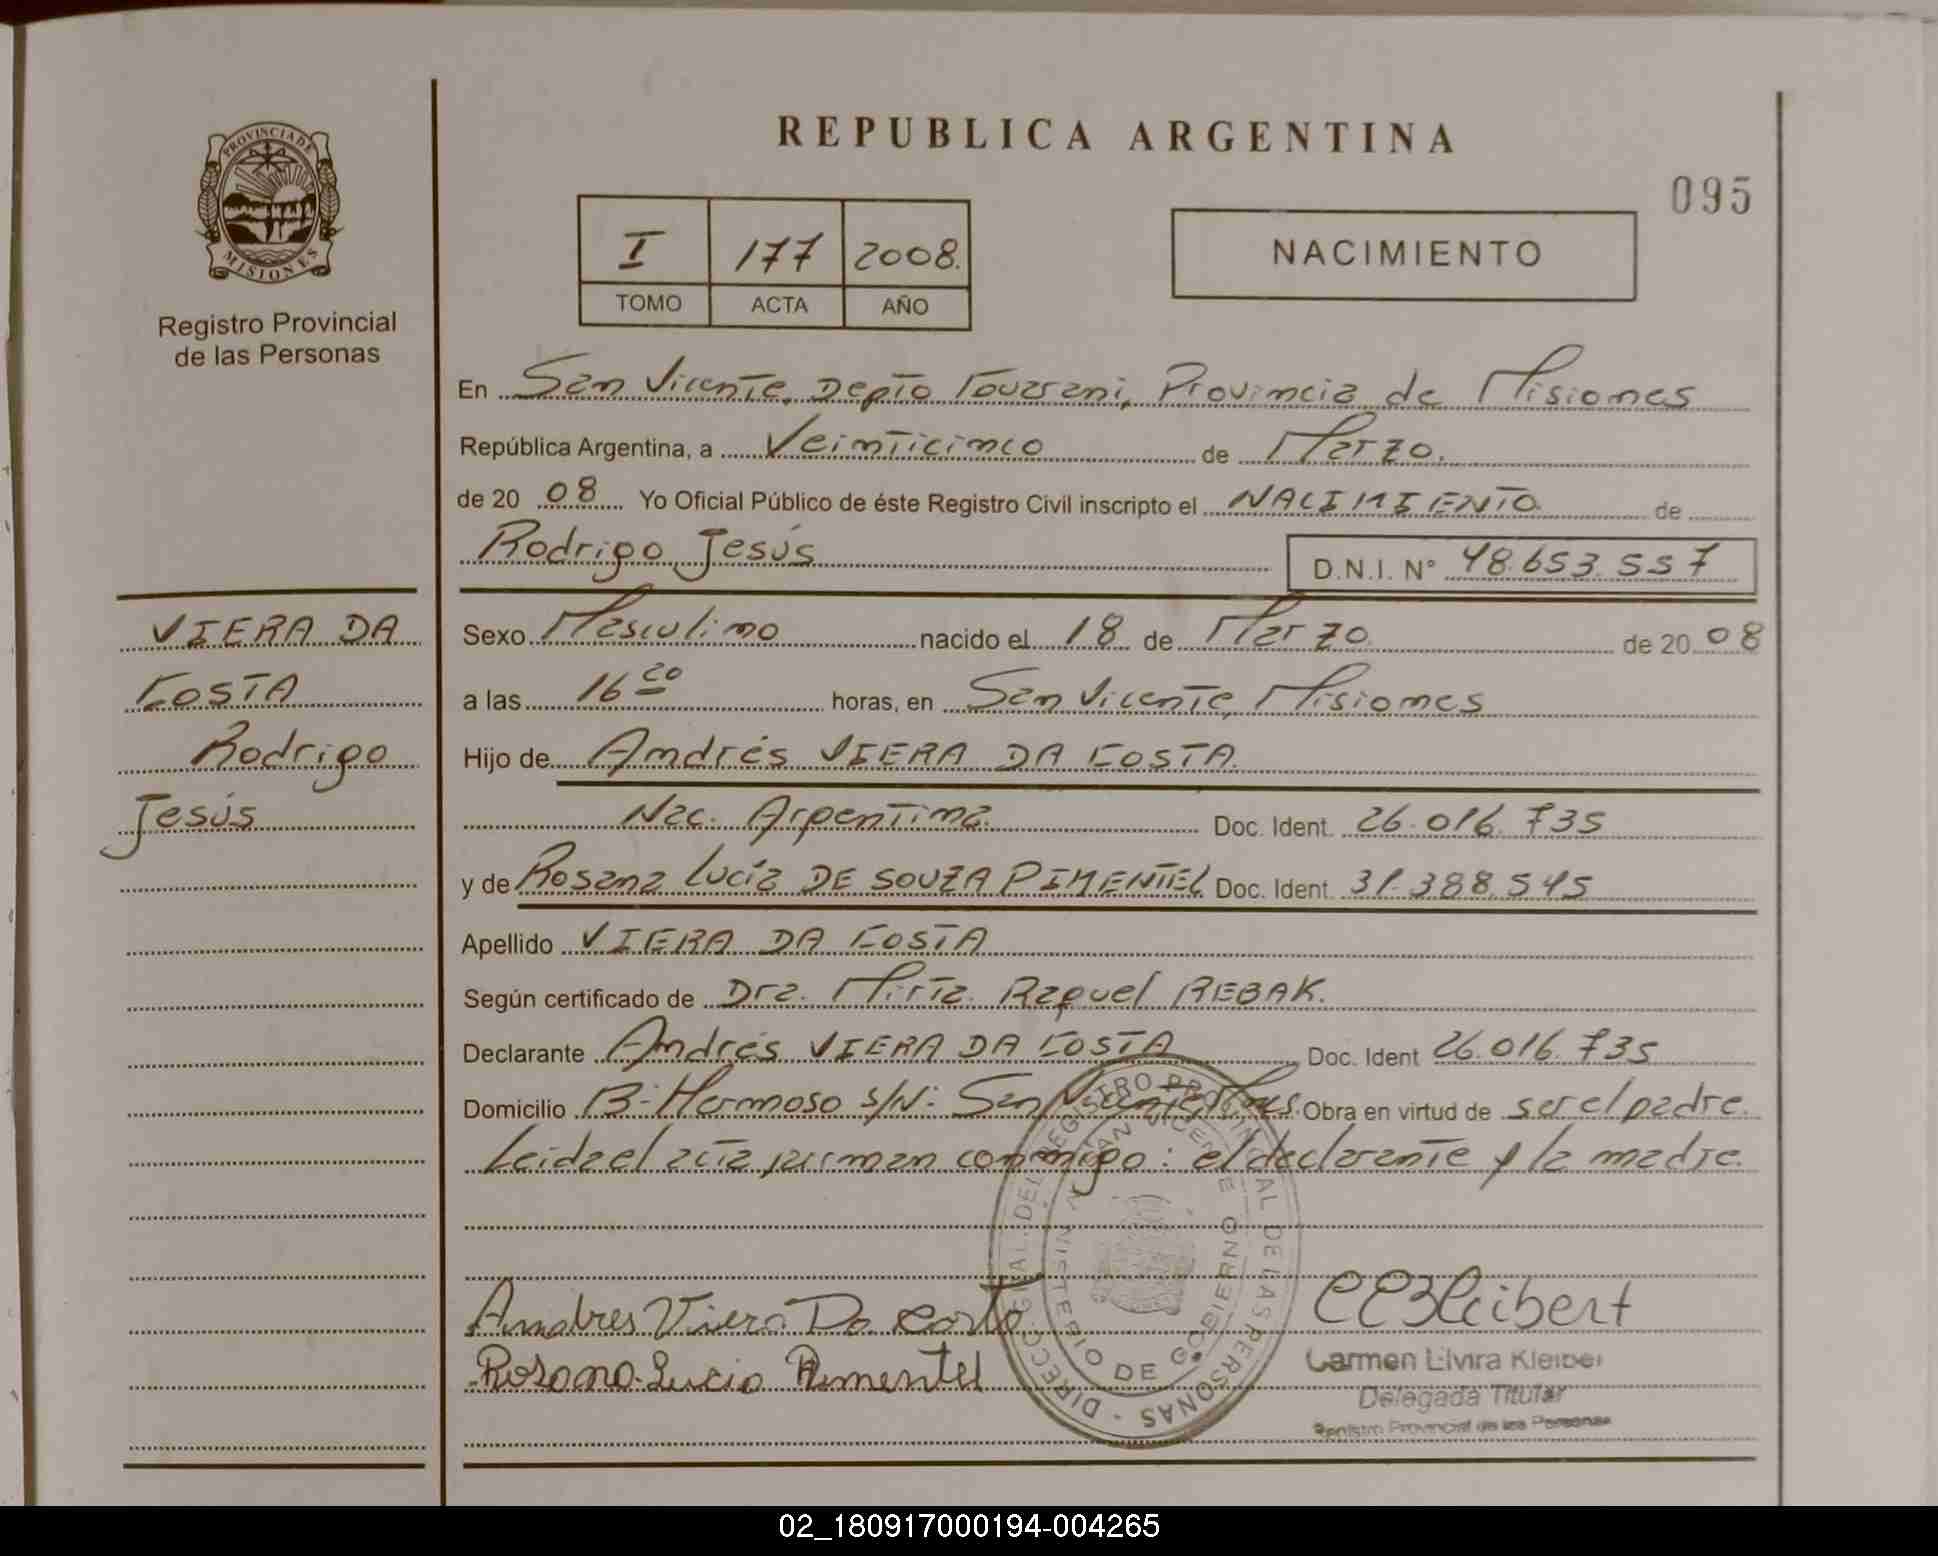 PROVINCIA DE
MISIONES
Registro Provincial
de las Personas
VIERA DA
COSTA
Rodrigo
Jesús
REPUBLICA ARGENTINA
095
I 177 2008.
TOMO ACTA AÑO
NACIMIENTO
En San Vicente, Depto Guarani, Provincia de Misiones
República Argentina, a Veinticinco de Marzo.
de 20 08 Yo Oficial Público de éste Registro Civil inscripto el NACIMIENTO de
Rodrigo Jesús D.N.I. N° 48.653.557
Sexo Masculino nacido el 18 de Marzo de 20 08
a las 16 horas, en San Vicente, Misiones
Hijo de Andrés VIERA DA COSTA.
Nac. Argentina. Doc. Ident. 26.016.735
y de Rosana Lucía DE SOUZA PIMENTEL Doc. Ident. 31.388.545
Apellido VIERA DA COSTA
Según certificado de Dra. Mirta Raquel REBAK.
Declarante Andrés VIERA DA COSTA Doc. Ident 26.016.735
Domicilio B- Hermoso s/N: San Vicente, Mnes. Obra en virtud de ser el padre.
Leida el acta, firman conmigo: el declarante y la madre.
DIRECC. GRAL. DEL REGISTRO PROVINCIAL DE LAS PERSONAS -
SAN VICENTE
MINISTERIO DE GOBIERNO
Andres Viera Da Costa
Rosana Lucia Pimentel
CEKleibert
Carmen Elvira Kleiber
Delegada Titular
Registro Provincial de las Personas
02_180917000194-004265